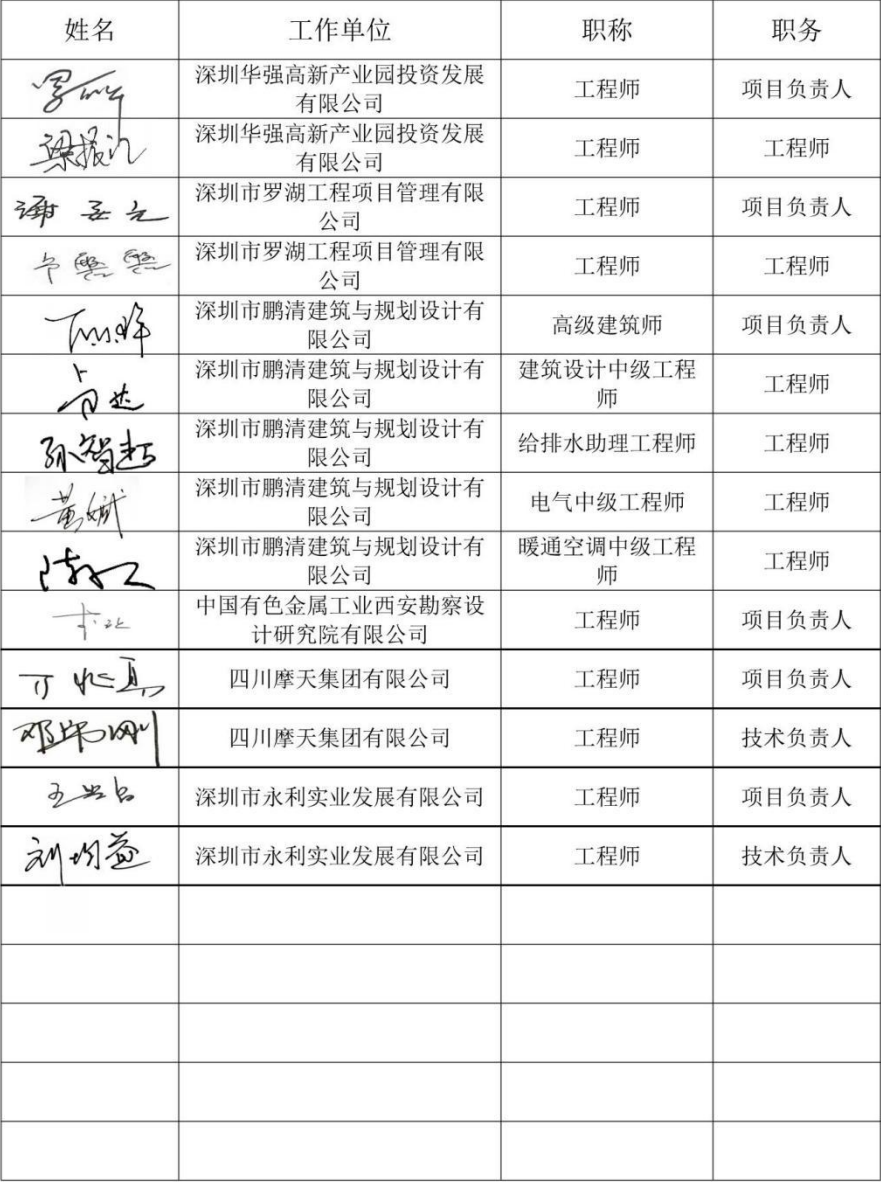 姓名 工作单位 职称 职务
深圳华强高新产业园投资发展
有限公司 工程师 项目负责人
梁振 深圳华强高新产业园投资发展
有限公司 工程师 工程师
谢 深圳市罗湖工程项目管理有限
公司 工程师 项目负责人
深圳市罗湖工程项目管理有限
公司 工程师 工程师
深圳市鹏清建筑与规划设计有
限公司 高级建筑师 项目负责人
深圳市鹏清建筑与规划设计有
限公司 建筑设计中级工程
师 工程师
孙智超 深圳市鹏清建筑与规划设计有
限公司 给排水助理工程师 工程师
黄斌 深圳市鹏清建筑与规划设计有
限公司 电气中级工程师 工程师
深圳市鹏清建筑与规划设计有
限公司 暖通空调中级工程
师 工程师
中国有色金属工业西安勘察设
计研究院有限公司 工程师 项目负责人
四川摩天集团有限公司 工程师 项目负责人
四川摩天集团有限公司 工程师 技术负责人
深圳市永利实业发展有限公司 工程师 项目负责人
刘均益 深圳市永利实业发展有限公司 工程师 技术负责人